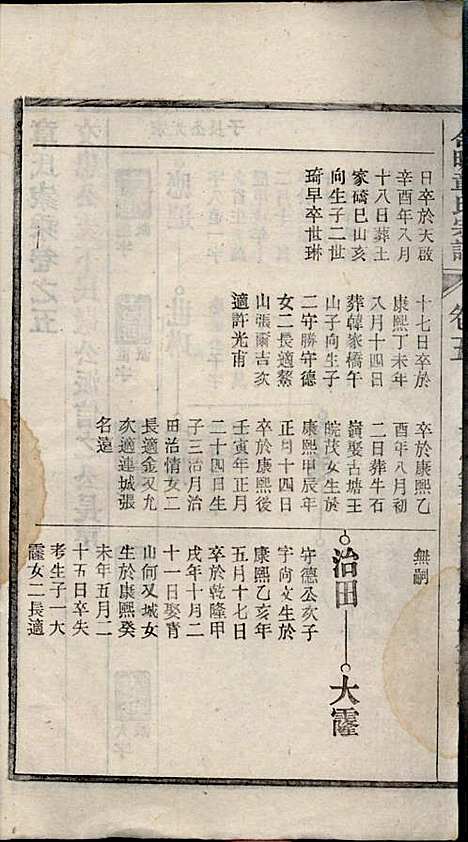 日卒於天啟
辛酉年八月
十八日葬土
家礄巳山亥
向生子二世
琦早卒世琳
十七日卒於
康熙丁未年
八月十四日
葬韓家橋午
山子向生子
二守勝守德
女二長適鰲
山張爾吉次
適許光甫
卒於康熙乙
酉年八月初
二日葬牛石
嶺娶古塘王
皖茂女生於
康熙甲辰年
正月十四日
卒於康熙
壬寅年正月
二十四日生
子三治月治
田治情女二
長適金双允
次適連城張
名遠
無嗣
治田——大霳
守德公次子
字尚文生於
康熙乙亥年
五月十七日
卒於乾隆甲
戌年十月二
十一日娶霄
山何又城女
生於康熙癸
未年五月二
十五日卒失
考生子一大
霳女二長適
卷五